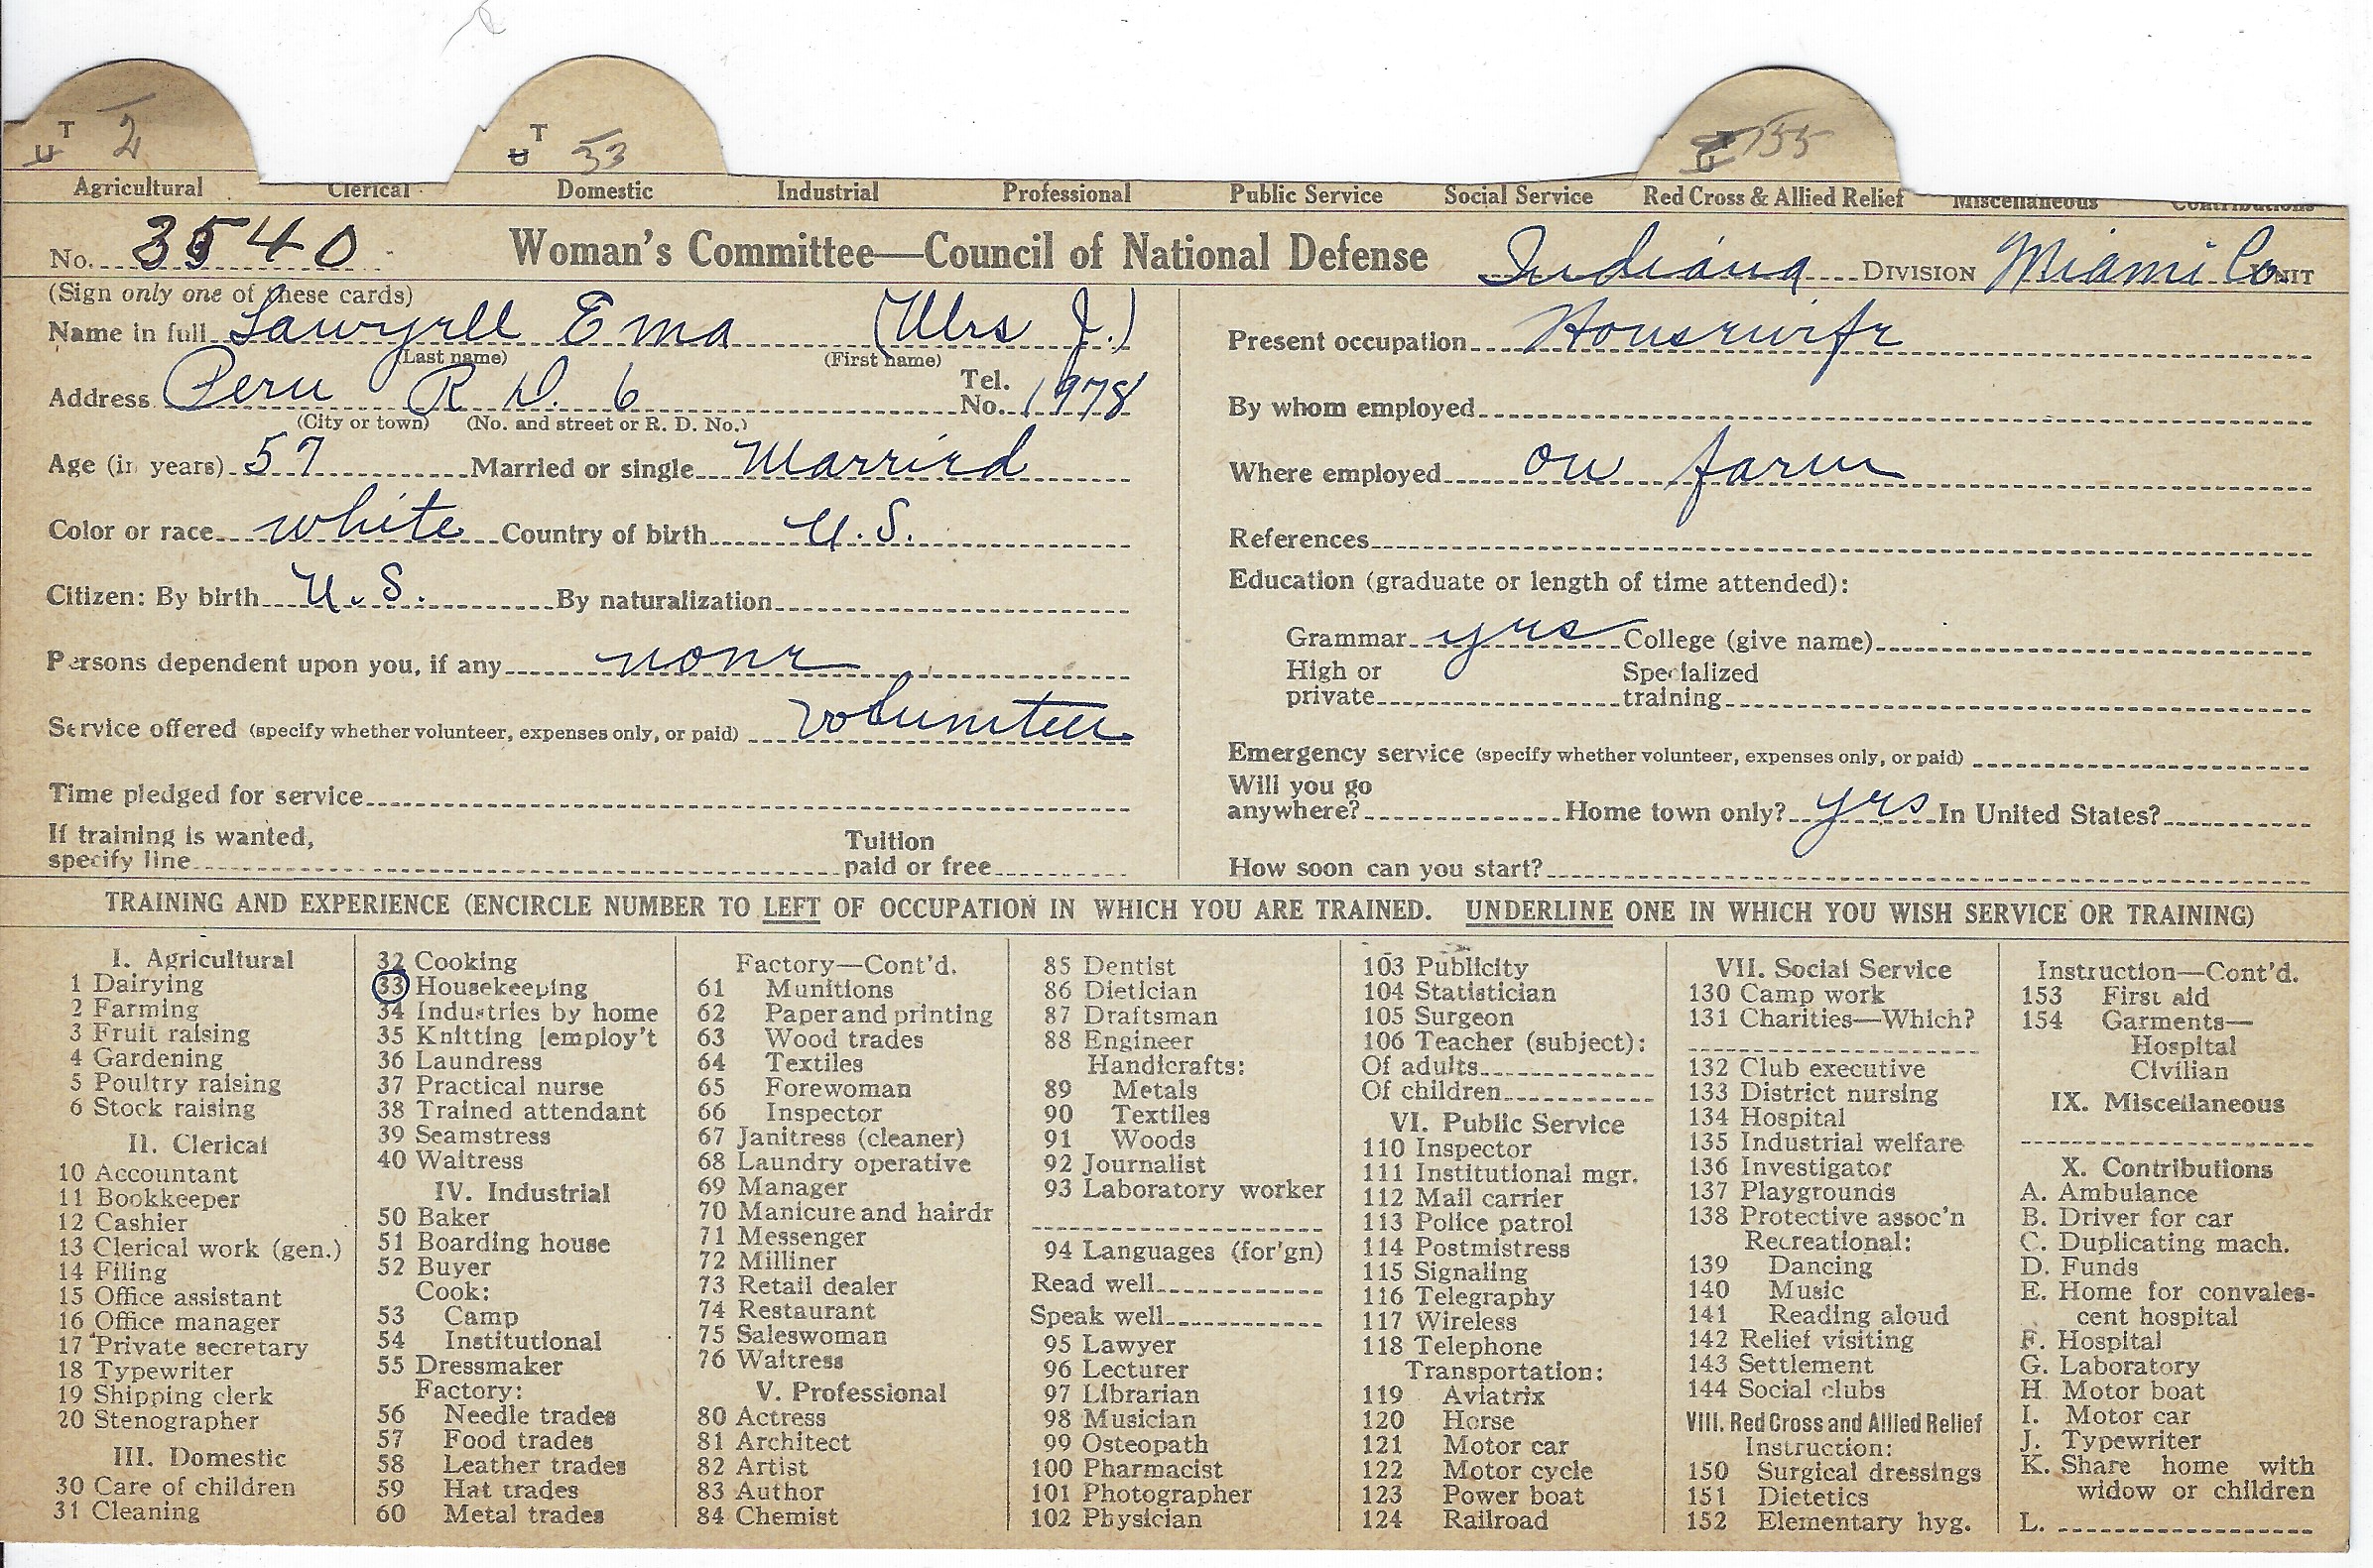 T 2
U
T 33
U
155
Agricultural Clerical Domestic Industrial Professional Public Service Social Service Red Cross & Allied Relief Miscellaneous Contributions
No. 3540 Woman's Committee—Council of National Defense Indiana DIVISION Miami Co. UNIT
(Sign only one of these cards)
Name in full Lawyrll Ema (Mrs J.)
(Last name) (First name)
Address Peru R D. 6 Tel. No. 1978
(City or town) (No. and street or R. D. No.)
Age (in years) 57 Married or single Married
Color or race white Country of birth U.S.
Citizen: By birth U.S. By naturalization
Persons dependent upon you, if any none
Service offered (specify whether volunteer, expenses only, or paid) volunteer
Time pledged for service
If training is wanted,
specify line
Tuition
paid or free
Present occupation Housewife
By whom employed
Where employed on farm
References
Education (graduate or length of time attended):
Grammar yes College (give name)
High or
private
Specialized
training
Emergency service (specify whether volunteer, expenses only, or paid)
Will you go
anywhere? Home town only? yes In United States?
How soon can you start?
TRAINING AND EXPERIENCE (ENCIRCLE NUMBER TO LEFT OF OCCUPATION IN WHICH YOU ARE TRAINED. UNDERLINE ONE IN WHICH YOU WISH SERVICE OR TRAINING)
I. Agricultural
1 Dairying
2 Farming
3 Fruit raising
4 Gardening
5 Poultry raising
6 Stock raising
II. Clerical
10 Accountant
11 Bookkeeper
12 Cashier
13 Clerical work (gen.)
14 Filing
15 Office assistant
16 Office manager
17 Private secretary
18 Typewriter
19 Shipping clerk
20 Stenographer
III. Domestic
30 Care of children
31 Cleaning
32 Cooking
33 Housekeeping
34 Industries by home
35 Knitting [employ't
36 Laundress
37 Practical nurse
38 Trained attendant
39 Seamstress
40 Waitress
IV. Industrial
50 Baker
51 Boarding house
52 Buyer
Cook:
53 Camp
54 Institutional
55 Dressmaker
Factory:
56 Needle trades
57 Food trades
58 Leather trades
59 Hat trades
60 Metal trades
Factory—Cont'd.
61 Munitions
62 Paper and printing
63 Wood trades
64 Textiles
65 Forewoman
66 Inspector
67 Janitress (cleaner)
68 Laundry operative
69 Manager
70 Manicure and hairdr
71 Messenger
72 Milliner
73 Retail dealer
74 Restaurant
75 Saleswoman
76 Waitress
V. Professional
80 Actress
81 Architect
82 Artist
83 Author
84 Chemist
85 Dentist
86 Dietician
87 Draftsman
88 Engineer
Handicrafts:
89 Metals
90 Textiles
91 Woods
92 Journalist
93 Laboratory worker
94 Languages (for'gn)
Read well
Speak well
95 Lawyer
96 Lecturer
97 Librarian
98 Musician
99 Osteopath
100 Pharmacist
101 Photographer
102 Physician
103 Publicity
104 Statistician
105 Surgeon
106 Teacher (subject):
Of adults
Of children
VI. Public Service
110 Inspector
111 Institutional mgr.
112 Mail carrier
113 Police patrol
114 Postmistress
115 Signaling
116 Telegraphy
117 Wireless
118 Telephone
Transportation:
119 Aviatrix
120 Horse
121 Motor car
122 Motor cycle
123 Power boat
124 Railroad
VII. Social Service
130 Camp work
131 Charities—Which?
132 Club executive
133 District nursing
134 Hospital
135 Industrial welfare
136 Investigator
137 Playgrounds
138 Protective assoc'n
Recreational:
139 Dancing
140 Music
141 Reading aloud
142 Relief visiting
143 Settlement
144 Social clubs
VIII. Red Cross and Allied Relief
Instruction:
150 Surgical dressings
151 Dietetics
152 Elementary hyg.
Instruction—Cont'd.
153 First aid
154 Garments—
Hospital
Civilian
IX. Miscellaneous
X. Contributions
A. Ambulance
B. Driver for car
C. Duplicating mach.
D. Funds
E. Home for convales-
cent hospital
F. Hospital
G. Laboratory
H. Motor boat
I. Motor car
J. Typewriter
K. Share home with
widow or children
L.